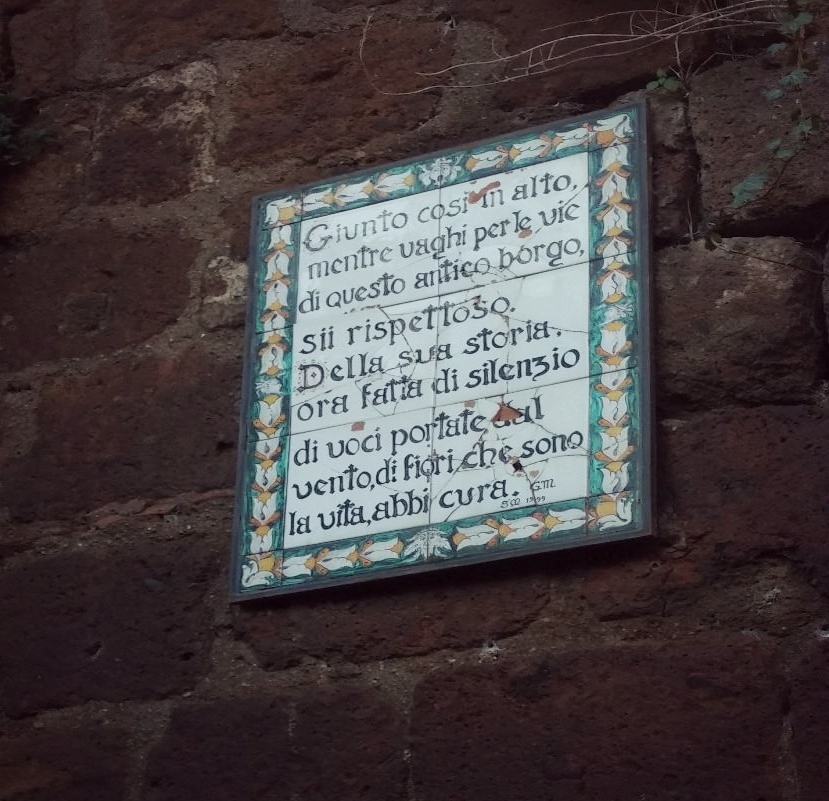 Giunto così in alto,
mentre vaghi per le vie
di questo antico borgo,
sii rispettoso.
Della sua storia.
ora fatta di silenzio
di voci portate dal
vento, di fiori che sono
la vita, abbi cura.
G.M.
1999